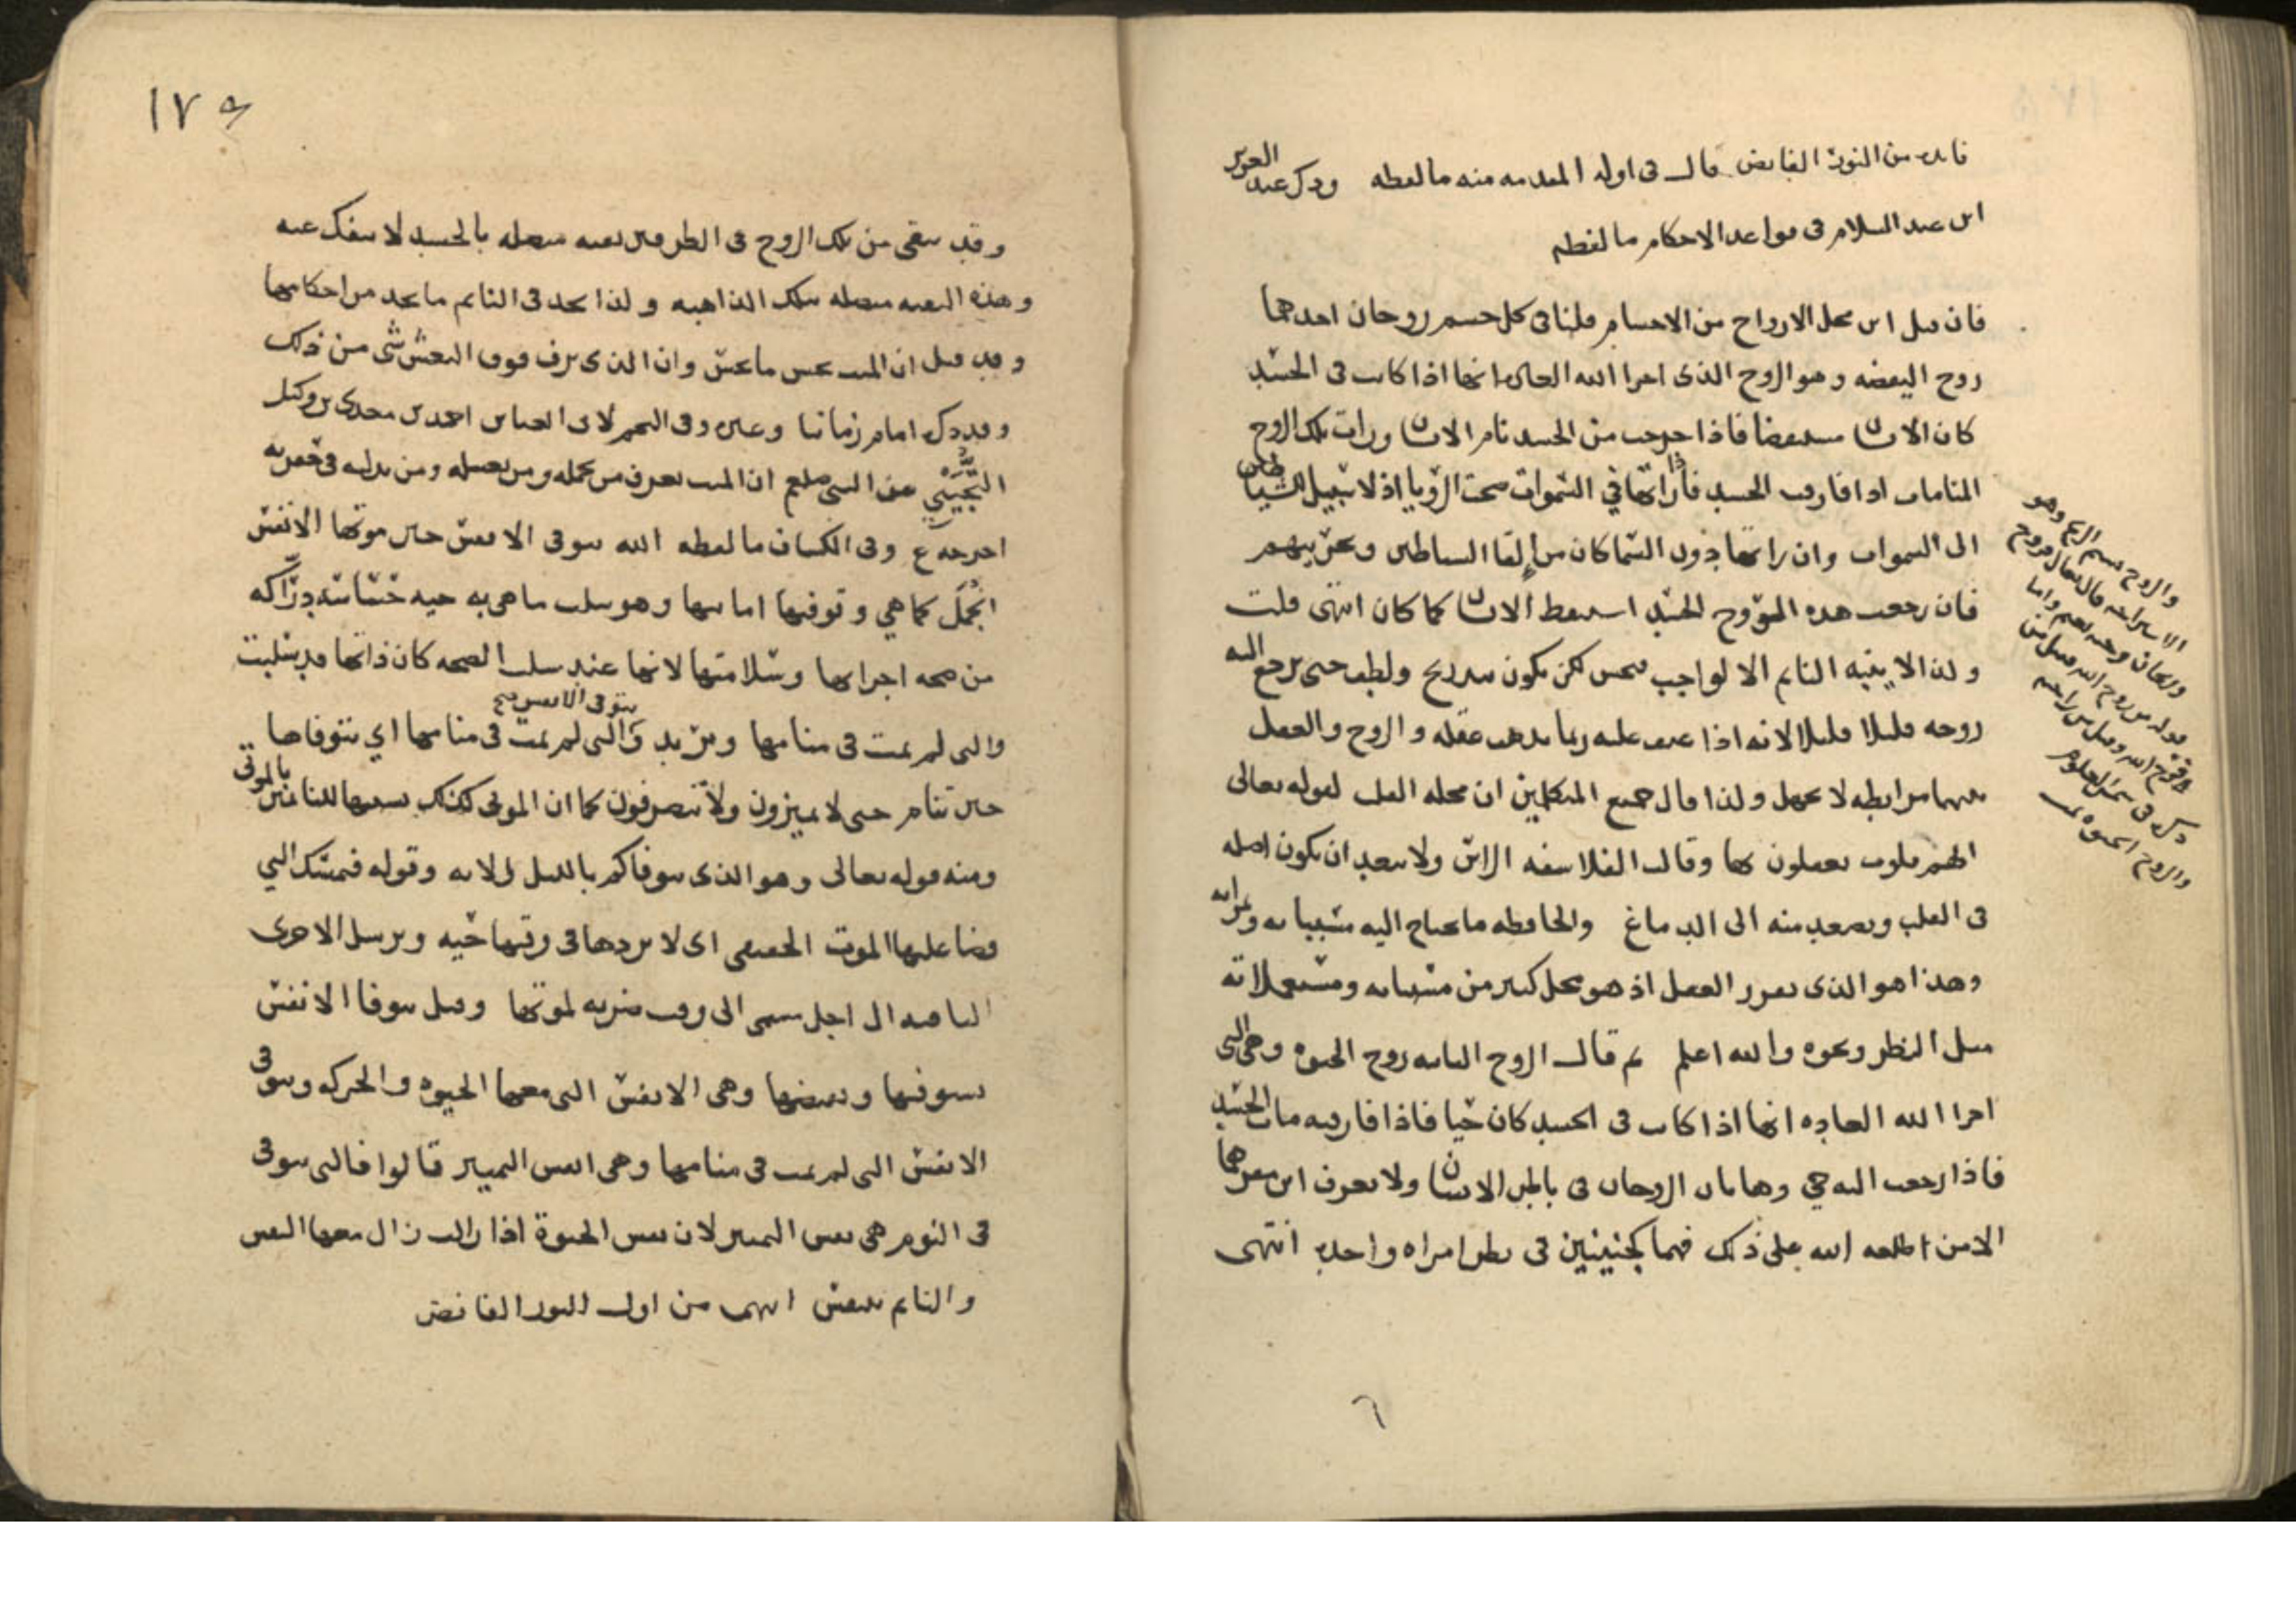 فايده من النور الفايض قال في اوله المقدمه منه ما لفظه وذكر عبد العزيز
ابن عبد السلام في قواعد الاحكام ما لفظه
فان قيل اين محل الارواح من الاجسام قلنا في كل جسم روحان احدهما
روح اليقضه وهو الروح الذي اجرا الله العاده انها اذا كانت في الجسد
كان الانسان مستيقضا فاذا خرجت من الجسد نام الانسان ورات تلك الروح
المنامات اذا فارقت الجسد فاذا راتها في السموات صحت الرؤيا اذ لا سبيل للشياطين
الى السموات وان راتها دون السما كان من إلقا الشياطين وتحزينهم
فان رجعت هذه الروح الجسد استيقظ الانسان كما كان انتهى قلت
ولذا لا ينبه النايم الا لواجب لكن يكون بتدريج ولطف حتى يرجع اليه
روحه قليلا قليلا لانه اذا عنف عليه ربما يذهب عقله والروح والعقل
بينهما مرابطه لا تجهل ولذا قال جميع المتكلمين ان محله القلب لقوله تعالى
لهم قلوب يعقلون بها وقالت الفلاسفه الراس ولا يبعد ان يكون اصله
في القلب ويصعد منه الى الدماغ والحافظه ما يحتاج اليه
وهذا هو الذي يقرر العقل اذ هو محل كثير من
مثل النظر ونحوه والله اعلم ثم قال الروح الثانيه روح الحيوه وهي التي
اجرا الله العاده انها اذا كانت في الجسد كان حيا فاذا فارقته مات الجسد
فاذا رجعت اليه حي وهاتان الروحان في باطن الانسان ولا يعرف اين مقرهما
الا من اطلعه الله على ذلك فهما كجنينين في بطن امراه واحده انتهى
والروح نسيم الريح وهو
قال تعالى فروح
وريحان وجنه نعيم واما
قوله من روح الله فقيل من
ذكره في شمس العلوم
١٧٥
وقد يبقى من تلك الروح في الطرفين بقيه متصله بالجسد لا ينفك عنه
وهذه البقيه متصله بتلك الذاهبه ولذا تجد في النايم ما تجد من احكامها
وقد قيل ان الميت يحس ما يحس وان الذي يرف فوق النعش شي من ذلك
وقد ذكر امام زماننا وغيره وفي النجم لابي العباس احمد بن معد بن وكيل
التُّجيبي عن النبي صلعم ان الميت يعرف من يحمله ومن يغسله ومن يدليه في حفرته
اخرجه ع وفي الكشاف ما لفظه الله يتوفى الانفس حين موتها الانفس
الجُمَل كما هي وتوفيها اماتتها وهو سلب ما هي به حيه حسّاسه درّاكه
من صحه اجزائها وسلامتها لانها عند سلب الصحه كان ذاتها قد سلبت
والتي لم تمت في منامها ويريد يتوفى الانفس صح والتي لم تمت في منامها اي يتوفاها
حين تنام حتى لا يميزون ولا يتصرفون كما ان الموتى كذلك تشبيها للنائمين بالموتى
ومنه قوله تعالى وهو الذي يتوفاكم بالليل الايه وقوله فيمسك التي
قضا عليها الموت الحقيقي اي لا يردها في وقتها حيه ويرسل الاخرى
النايمه الى اجل مسمى الى وقت ضربه لموتها وقيل يتوفا الانفس
يستوفيها ويقبضها وهي الانفس التي معها الحيوه والحركه ويتوفى
الانفس التي لم تمت في منامها وهي انفس التمييز قالوا فالتي يتوفى
في النوم هي نفس التمييز لان نفس الحيوة اذا زالت زال معها النفس
والنايم يتنفس انتهى من اول النور الفائض